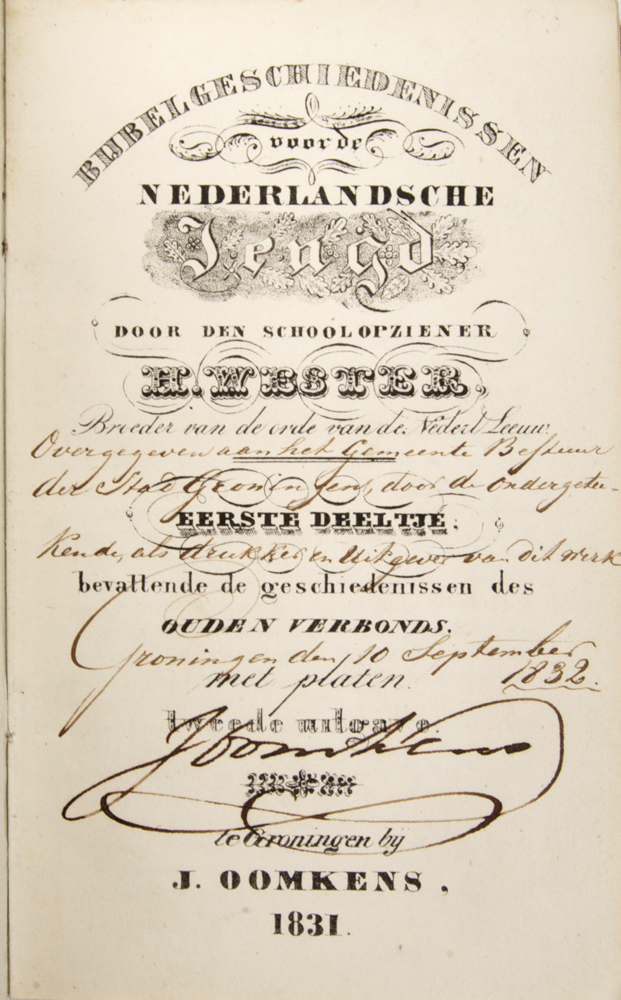 BIJBELGESCHIEDENISSEN
voor de
NEDERLANDSCHE
Jeugd
DOOR DEN SCHOOLOPZIENER
H. WESTER,
Broeder van de orde van de Nederl Leeuw.
Overgegeven aan het Gemeente Bestuur
der Stad Groningen, door de ondergetee-
EERSTE DEELTJE,
kende, als drukker en Uitgever van dit werk
bevattende de geschiedenissen des
OUDEN VERBONDS.
Groningen den 10 September
1832.
met platen.
tweede uitgave.
J Oomkens
te Groningen by
J. OOMKENS,
1831.